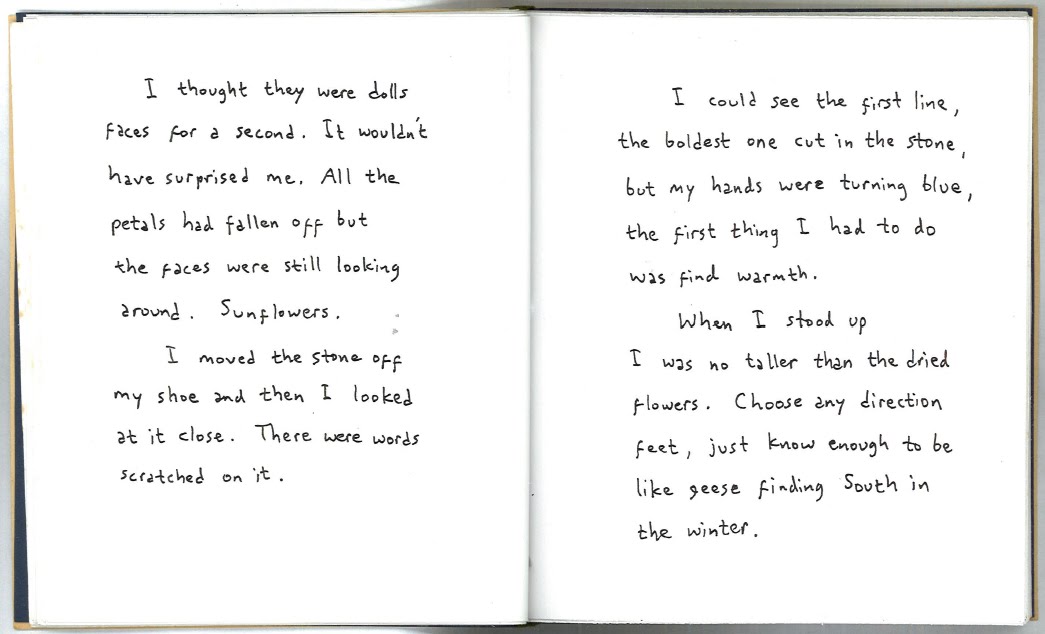 I thought they were dolls
faces for a second. It wouldn't
have surprised me. All the
petals had fallen off but
the faces were still looking
around. Sunflowers.
I moved the stone off
my shoe and then I looked
at it close. There were words
scratched on it.
I could see the first line,
the boldest one cut in the stone,
but my hands were turning blue,
the first thing I had to do
was find warmth.
When I stood up
I was no taller than the dried
flowers. Choose any direction
feet, just know enough to be
like geese finding South in
the winter.